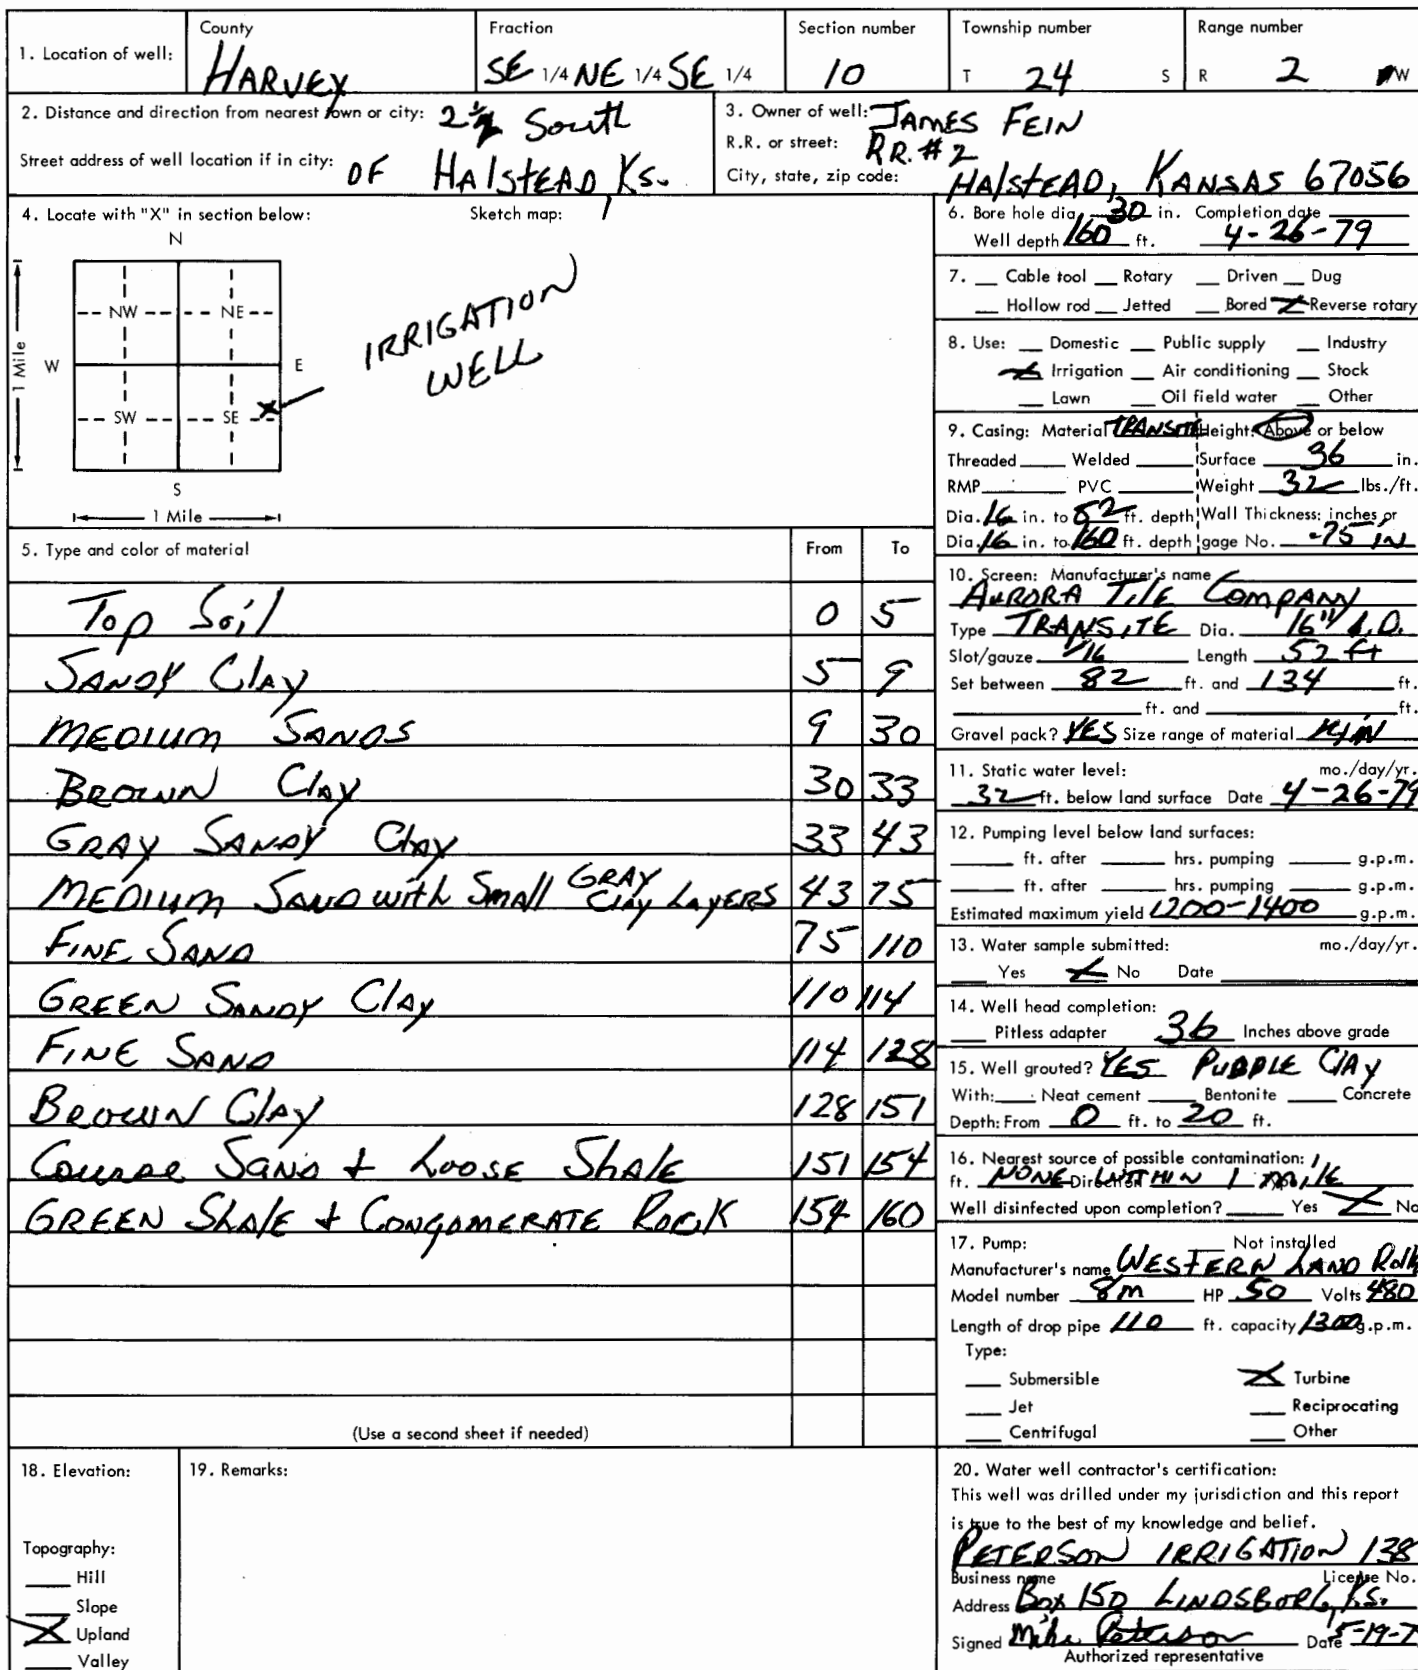 County Fraction Section number Township number Range number
1. Location of well: HARVEY SE 1/4 NE 1/4 SE 1/4 10 T 24 S R 2 W
2. Distance and direction from nearest town or city: 2 1/2 South
Street address of well location if in city: OF HAlSTEAD, Ks.
3. Owner of well: JAMES FEIN
R.R. or street: RR. #2
City, state, zip code: HAlSTEAD, KANSAS 67056
4. Locate with "X" in section below: Sketch map:
N
NW NE
1 Mile W E
SW SE X
S
1 Mile
IRRIGATION
WELL
5. Type and color of material From To
Top Soil 0 5
SANDY Clay 5 9
MEDIUM SANDS 9 30
BROWN Clay 30 33
GRAY SANDY Clay 33 43
MEDIUM SAND with Small GRAY Clay LAYERS 43 75
FINE SAND 75 110
GREEN SANDY Clay 110 114
FINE SAND 114 128
BROWN ClAY 128 151
Course SAND + Loose ShAlE 151 154
GREEN ShAlE + CONGOMERATE ROCK 154 160
(Use a second sheet if needed)
6. Bore hole dia. 30 in. Completion date
Well depth 160 ft. 4-26-79
7. Cable tool Rotary Driven Dug
Hollow rod Jetted Bored X Reverse rotary
8. Use: Domestic Public supply Industry
X Irrigation Air conditioning Stock
Lawn Oil field water Other
9. Casing: Material TRANSITE Height: Above or below
Threaded Welded Surface 36 in.
RMP PVC Weight 32 lbs./ft.
Dia. 16 in. to 82 ft. depth Wall Thickness: inches or
Dia. 16 in. to 160 ft. depth gage No. .75 IN
10. Screen: Manufacturer's name
AURORA TIlE COMPANY
Type TRANSITE Dia. 16" I.D.
Slot/gauze 1/16 Length 52 ft
Set between 82 ft. and 134 ft.
ft. and ft.
Gravel pack? YES Size range of material
11. Static water level: mo./day/yr.
32 ft. below land surface Date 4-26-79
12. Pumping level below land surfaces:
ft. after hrs. pumping g.p.m.
ft. after hrs. pumping g.p.m.
Estimated maximum yield 1200-1400 g.p.m.
13. Water sample submitted: mo./day/yr.
Yes X No Date
14. Well head completion:
Pitless adapter 36 Inches above grade
15. Well grouted? YES PUDDLE ClAY
With: Neat cement Bentonite Concrete
Depth: From 0 ft. to 20 ft.
16. Nearest source of possible contamination:
ft. NONE Direction WITHIN 1 milE
Well disinfected upon completion? Yes X No
17. Pump: Not installed
Manufacturer's name WESTERN LAND
Model number 8m HP 50 Volts 480
Length of drop pipe 110 ft. capacity 1300 g.p.m.
Type:
Submersible X Turbine
Jet Reciprocating
Centrifugal Other
18. Elevation:
Topography:
Hill
Slope
X Upland
Valley
19. Remarks:
20. Water well contractor's certification:
This well was drilled under my jurisdiction and this report
is true to the best of my knowledge and belief.
PETERSON IRRIGATION 138
Business name License No.
Address Box 150 LINDSBORG, Ks.
Signed Mike Peterson Date 5-19-7
Authorized representative